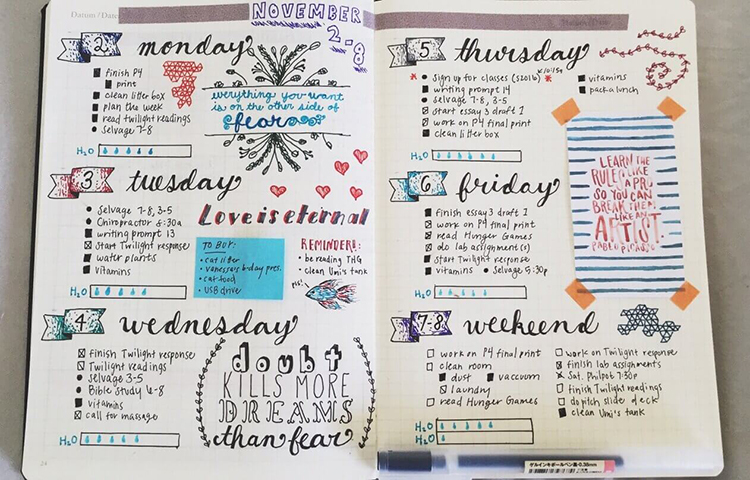 Datum / Date:
NOVEMBER
2-8
2 monday
finish P4
print
clean litter box
plan the week
read twilight readings
Selvage 7-8
H2O
everything you want
is on the other side of
fear
3 tuesday
Selvage 7-8, 3-5
Chiropractor 6:30a
writing prompt 13
start Twilight response
water plants
vitamins
H2O
Love is eternal
TO BUY:
cat litter
vanessa's b-day pres.
cat food
USB drive
REMINDERS:
be reading THG
clean Uni's tank
4 wednesday
finish Twilight response
Twilight readings
Selvage 3-5
Bible Study 6-8
vitamins
call for massage
H2O
doubt
KILLS MORE
DREAMS
than fear
24
5 thursday
Sign up for classes (S2016)
writing prompt 14
Selvage 7-8, 3-5
start essay 3 draft 1
work on P4 final print
clean litter box
vitamins
pack a lunch
H2O
6 friday
finish essay 3 draft 1
work on P4 final print
read Hunger Games
do lab assignment(s)
start Twilight response
vitamins
Selvage 5:30p
H2O
LEARN THE
RULES LIKE
A PRO
SO YOU CAN
BREAK THEM
LIKE AN
ARTIST.
PABLO PICASSO
7-8 weekend
work on P4 final print
clean room
dust
vaccum
laundry
read Hunger Games
work on Twilight response
finish lab assignments
Sat. Philpot 7:30p
finish Twilight readings
do pitch slide deck
clean Uni's tank
H2O
H2O
ゲルインキボールペン黒・0.38mm